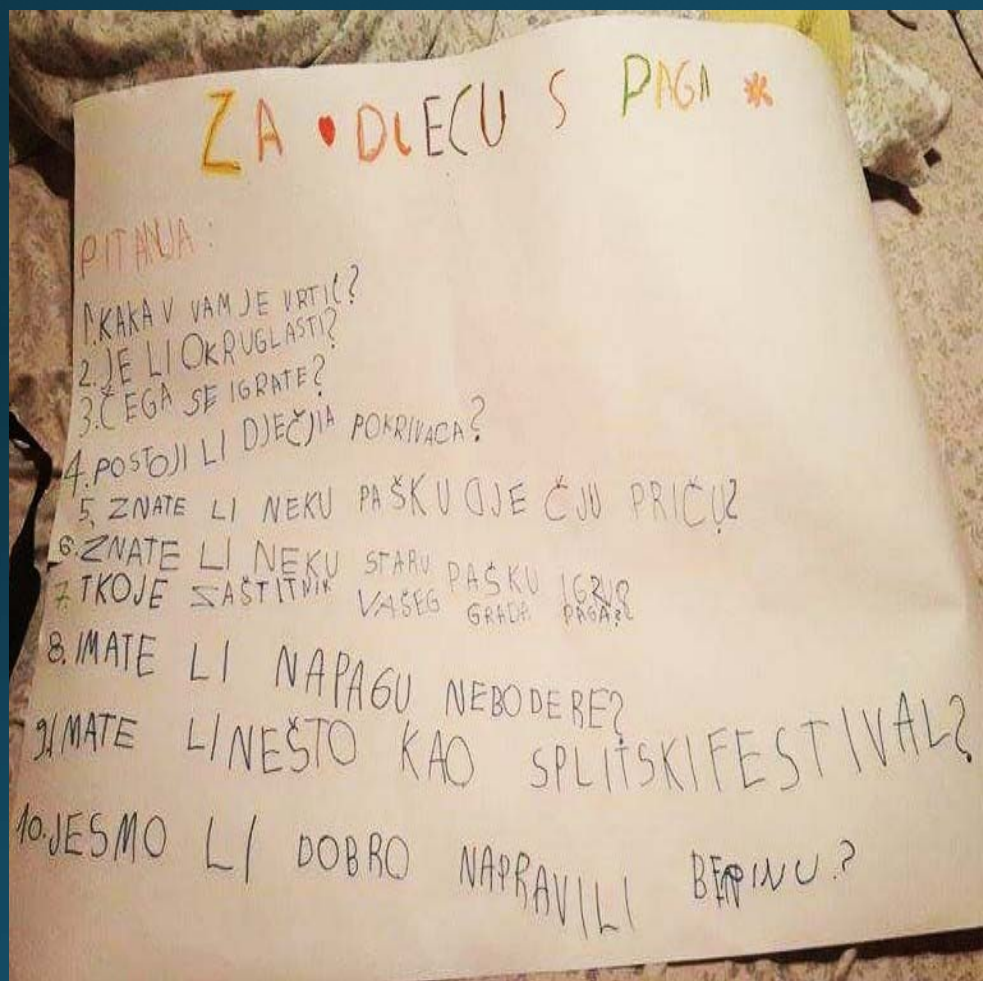 ZA DJECU S PAGA
PITANJA:
1. KAKAV VAM JE VRTIĆ?
2. JE LI OKRUGLASTI?
3. ČEGA SE IGRATE?
4. POSTOJI LI DJEČJIA POKRIVACA?
5. ZNATE LI NEKU PAŠKU DJEČJU PRIČU?
6. ZNATE LI NEKU STARU PAŠKU IGRU?
7. TKOJE ZAŠTITNIK VAŠEG GRADA PAGA?
8. IMATE LI NAPAGU NEBODERE?
9. IMATE LI NEŠTO KAO SPLITSKIFESTIVAL?
10. JESMO LI DOBRO NAPRAVILI